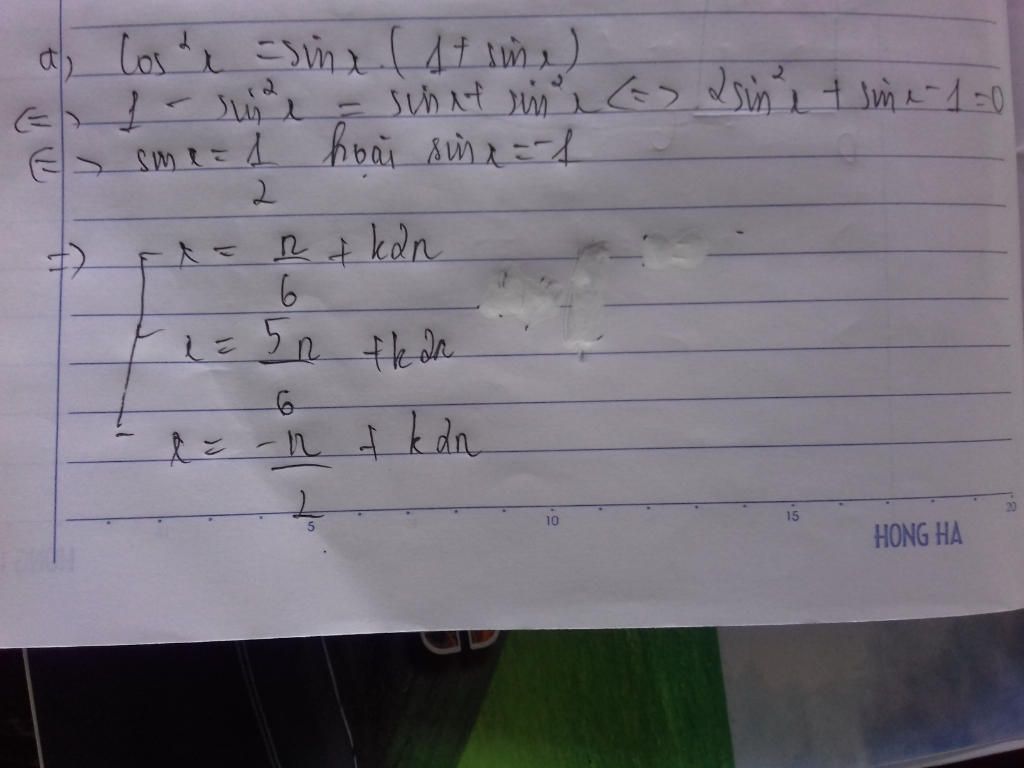 a) Cos²x = sinx.(1 + sinx)
<=> 1 - sin²x = sinx + sin²x <=> 2sin²x + sinx - 1 = 0
<=> sinx = 1/2 hoặc sinx = -1
=> x = π/6 + k2π
x = 5π/6 + k2π
x = -π/2 + k2π
5 10 15 20
HONG HA